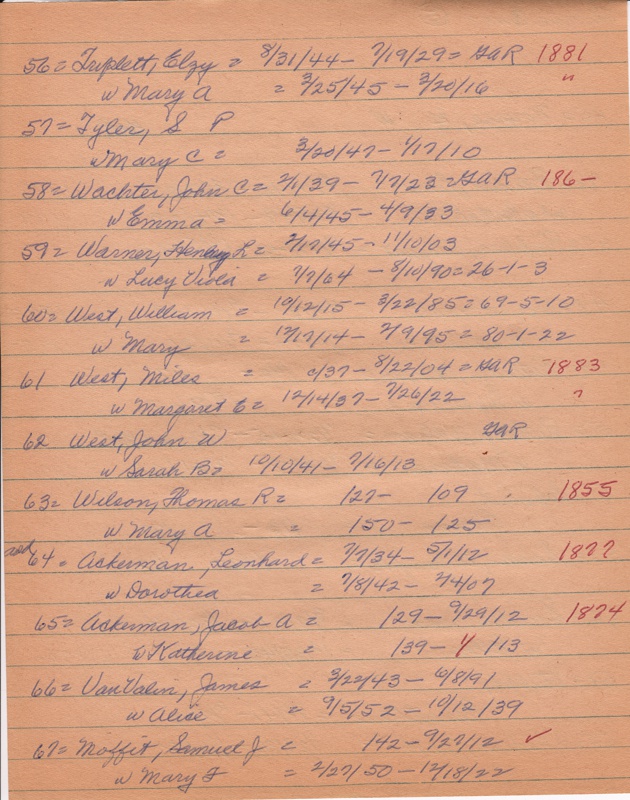 56 = Triplett, Elzy = 8/31/44 - 7/19/29 = GAR 1881
w Mary A = 3/25/45 - 3/20/16 "
57 = Tyler, S P
w Mary C = 3/20/47 - 1/17/10
58 = Wachter, John C = 2/1/39 - 7/17/23 = GAR 186-
w Emma = 6/4/45 - 4/9/33
59 = Warner, Henry L = 2/17/45 - 11/10/03
w Lucy Viola = 7/7/64 - 8/10/90 = 26-1-3
60 = West, William = 10/12/15 - 3/22/85 = 69-5-10
w Mary = 12/17/14 - 2/9/95 = 80-1-22
61 West, Miles = c/37 - 8/22/04 = GAR 1883
w Margaret E = 12/14/37 - 7/26/22 "
62 West, John W GAR
w Sarah B = 10/10/41 - 7/16/13
63 = Wilson, Thomas R = /27 - /09 1855
w Mary A = /50 - /25
add 64 = Ackerman, Leonhard = 7/7/34 - 5/1/12 1877
w Dorothea = 7/8/42 - 2/4/07
65 = Ackerman, Jacob A = /29 - 9/29/12 1874
w Katherine = /39 - 4 /13
66 = VanValin, James = 3/22/43 - 6/8/91
w Alice = 9/5/52 - 10/12/39
67 = Moffit, Samuel J = /42 - 9/27/12 ✓
w Mary F = 2/27/50 - 12/18/22